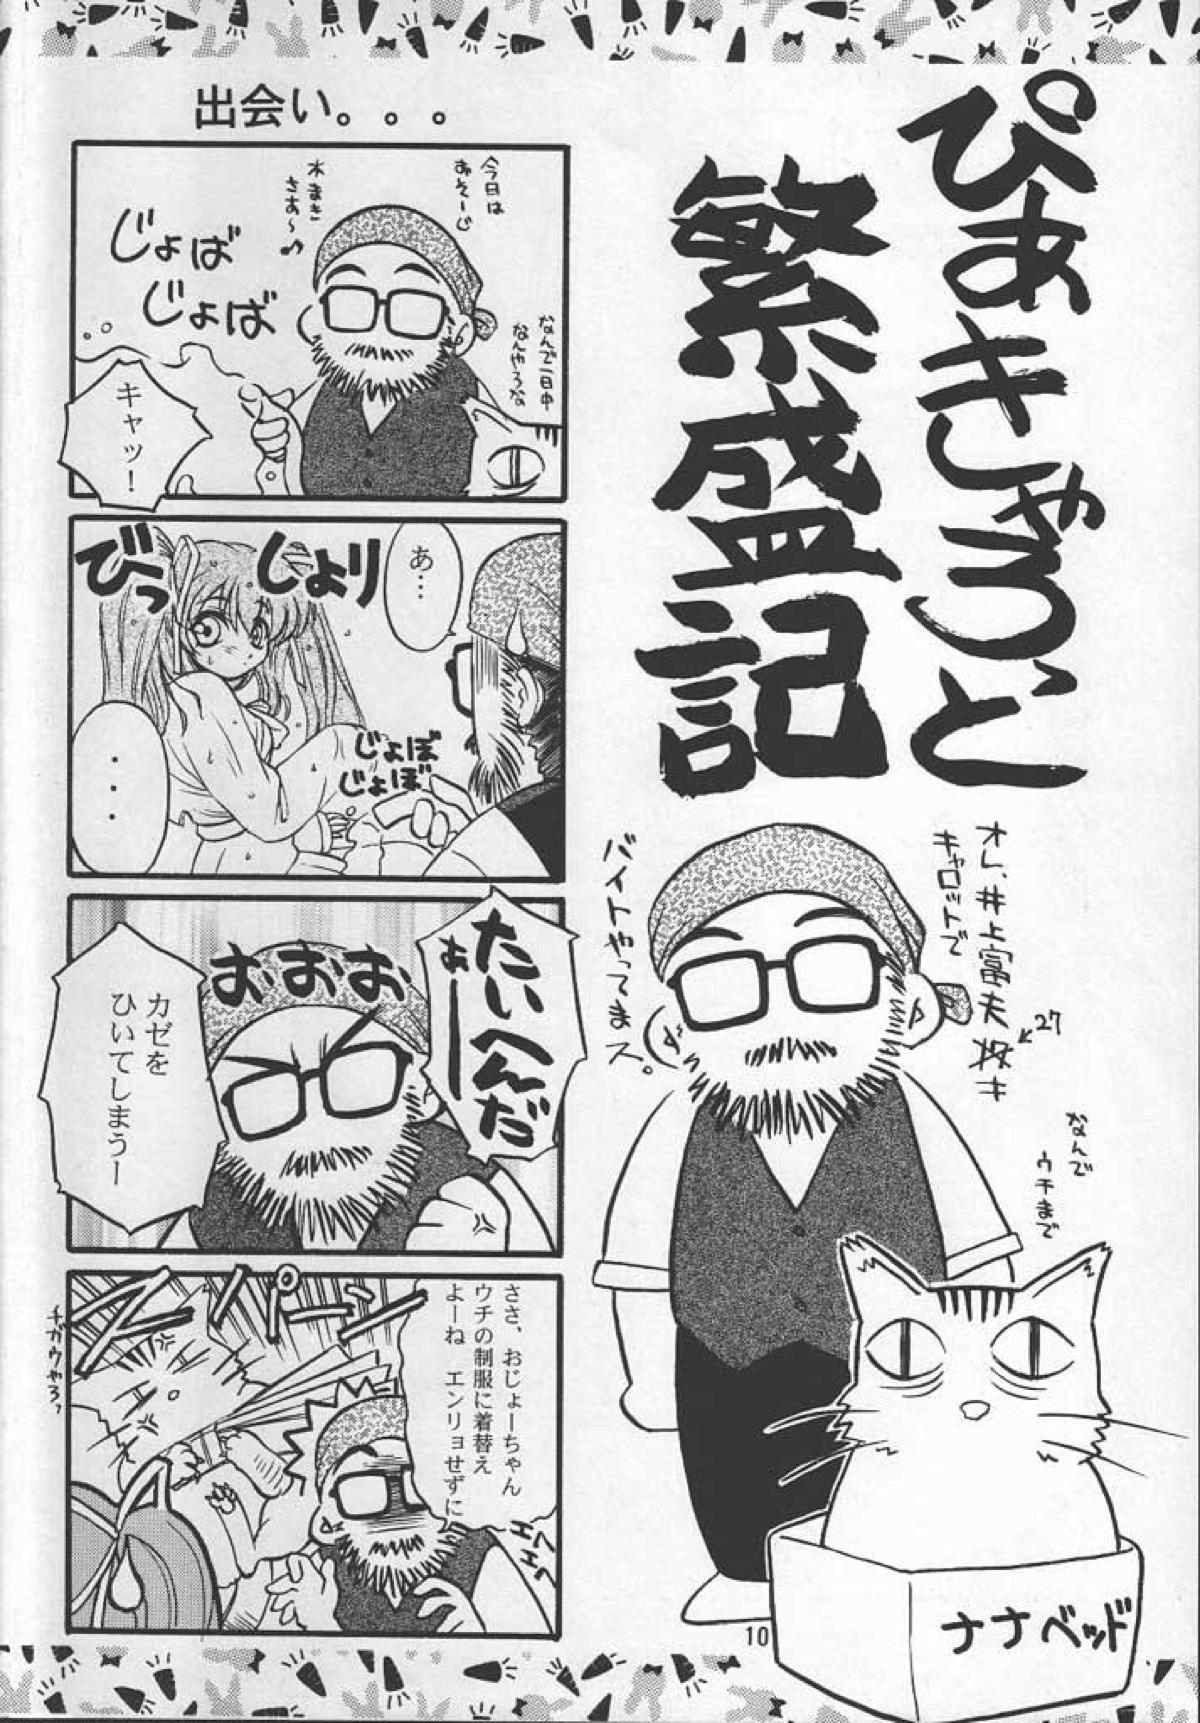 ぴあきゃろっと
繁盛記
オレ、井上富夫
27
キャロットで
バイトやってまス。
なんで
ウチまで
ナナベッド
10
出会い。。。
今日は
おそーじ
水まき
さあ〜♪
じょば
じょば
なんで一日中
なんやろな
キャッ！
あ…
びっ
しょり
じょぼ
じょぼ
・・・
たいへんだ
ぁーー
おおお
カゼを
ひいてしまうー
ささ、おじょーちゃん
ウチの制服に着替え
よーね　エンリョせずに
エヘ
エヘ
スパーン
チガウやろっ